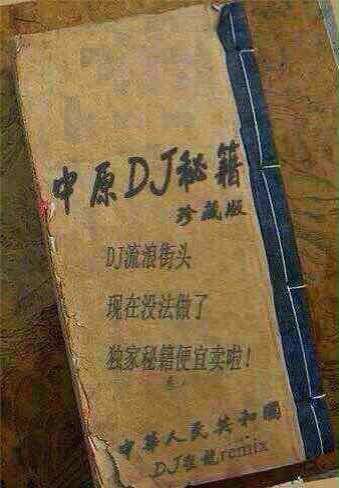 中原DJ秘籍
珍藏版
DJ流浪街头
现在没法做了
独家秘籍便宜卖啦！
中華人民共和國
remix